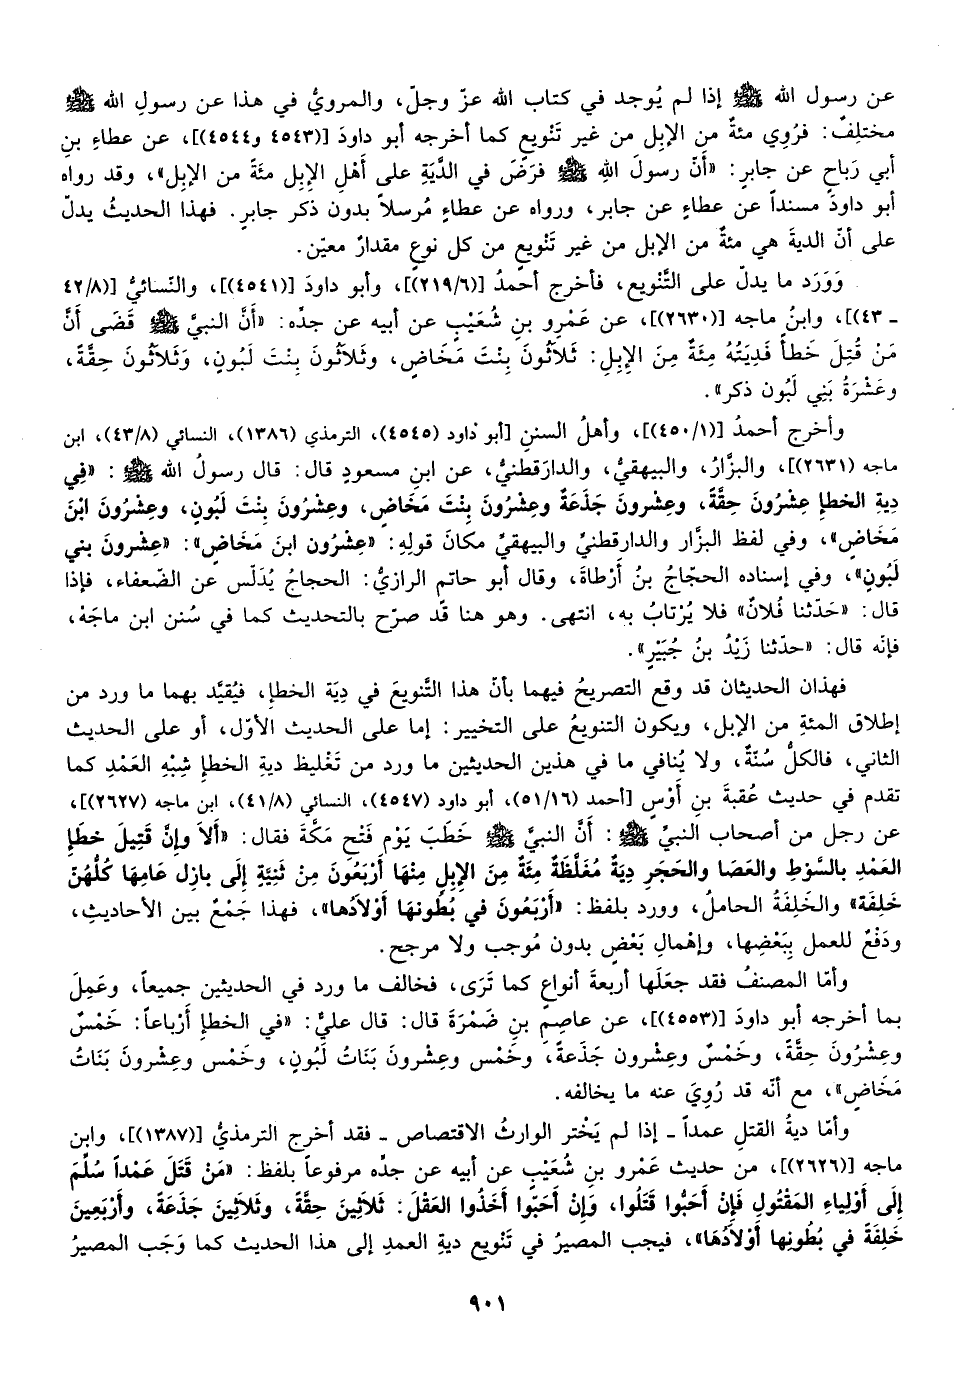 عن رسول الله ﷺ إذا لم يُوجد في كتاب الله عزّ وجلّ، والمرويُّ في هذا عن رسولِ الله ﷺ
مختلِفٌ: فرُوِي مئةٌ من الإبل من غير تَنْويع كما أخرجه أبو داودَ [(٤٥٤٣ و٤٥٤٤)]، عن عطاءِ بنِ
أبي رَباحٍ عن جابرٍ: «أنّ رسولَ اللهِ ﷺ فرَضَ في الدَّيَةِ على أَهْلِ الإبلِ مئةً من الإبِل»، وقد رواه
أبو داودَ مسنداً عن عطاءٍ عن جابر، ورواه عن عطاءٍ مُرسلاً بدون ذكر جابرٍ. فهذا الحديثُ يدلّ
على أنّ الديةَ هي مئةٌ من الإبل من غير تَنْويعٍ من كل نوعٍ مقدارٌ معيّن.
وَوَرَد ما يدلّ على التَّنْويع، فأخرج أحمدُ [(٢١٩/٦)]، وأبو داودَ [(٤٥٤١)]، والنّسائيُّ [(٤٢/٨
ـ ٤٣)]، وابنُ ماجه [(٢٦٣٠)]، عن عَمْرِو بنِ شُعَيْبٍ عن أبيه عن جدِّه: «أَنَّ النبيَّ ﷺ قَضَى أَنَّ
مَنْ قُتِلَ خَطأً فَدِيَتُهُ مِئَةٌ مِنَ الإِبِلِ: ثَلاَثُونَ بِنْتَ مَخَاضٍ، وثَلاَثُونَ بِنْتَ لَبُونٍ، وَثَلاَثُونَ حِقَّةً،
وعَشْرَةُ بَنِي لَبُون ذكر».
وأخرج أحمدُ [(٤٥٠/١)]، وأهلُ السننِ [أبو داود (٤٥٤٥)، الترمذي (١٣٨٦)، النسائي (٤٣/٨)، ابن
ماجه (٢٦٣١)]، والبزَّارُ، والبيهقيُّ، والدارَقطنيُّ، عن ابنِ مسعودٍ قال: قال رسولُ الله ﷺ: «فِي
دِيةِ الخطإِ عِشْرُونَ حِقَّةً، وعِشرونَ جَذَعَةً وعِشْرُونَ بِنْتَ مَخَاضٍ، وعِشْرُونَ بِنْتَ لَبُونٍ، وعِشْرُونَ ابْنَ
مَخَاضٍ»، وفي لفظ البزَّار والدارقطنيِّ والبيهقيِّ مكانَ قولِهِ: «عِشْرُون ابنَ مَخَاضٍ»: «عِشْرونَ بني
لَبُونٍ»، وفي إسناده الحجّاجُ بنُ أَرْطاةَ، وقال أبو حاتم الرازيُّ: الحجاجُ يُدَلّس عن الضّعفاء، فإذا
قال: «حَدّثنا فُلانٌ» فلا يُرْتابُ به، انتهى. وهو هنا قَد صرّح بالتحديث كما في سُنن ابن ماجَهْ،
فإنّه قال: «حدّثنا زَيْدُ بنُ جُبَيْرٍ».
فهذان الحديثان قد وقع التصريحُ فيهما بأنّ هذا التَّنويعَ في دِيَة الخطإِ، فيُقيَّد بهما ما ورد من
إطلاق المئةِ من الإبل، ويكون التنويعُ على التخيير: إما على الحديث الأوّل، أو على الحديث
الثاني، فالكلُّ سُنّةٌ، ولا يُنافي ما في هذين الحديثين ما ورد من تَغْليظ ديةِ الخطإِ شِبْهِ العَمْدِ كما
تقدم في حديث عُقبةَ بنِ أَوْسٍ [أحمد (٥١/١٦)، أبو داود (٤٥٤٧)، النسائي (٤١/٨)، ابن ماجه (٢٦٢٧)]،
عن رجل من أصحاب النبيِّ ﷺ: أَنَّ النبيَّ ﷺ خَطَبَ يَوْم فَتْحِ مَكَّةَ فقال: «أَلاَ وإِنَّ قَتِيلَ خطإِ
العَمْدِ بالسَّوْطِ والعَصَا والحَجَرِ دِيَةٌ مُغَلَّظَةٌ مِئةٌ مِنَ الإِبِلِ مِنْهَا أَرْبَعُونَ مِنْ ثَنِيَّةٍ إِلَى بازِلِ عَامِهَا كُلُّهُنّ
خَلِفَة» والخَلِفَةُ الحاملُ، وورد بلفظ: «أَرْبَعُونَ في بُطُونِهَا أَوْلاَدُها»، فهذا جَمْعٌ بين الأحاديثِ،
ودَفْعٌ للعملِ بِبَعْضِها، وإهْمالِ بَعْضٍ بدون مُوجب ولا مرجح.
وأمّا المصنفُ فقد جعَلَها أربعةَ أنواعٍ كما تَرَى، فخالف ما ورد في الحديثين جميعاً، وعَمِلَ
بما أخرجه أبو داودَ [(٤٥٥٣)]، عن عاصِمِ بنِ ضَمْرَةَ قال: قال عليٌّ: «في الخطإِ أَرْباعاً: خَمْسٌ
وعِشْرُونَ حِقَّةً، وخَمْسٌ وعِشْرون جَذَعةً، وخَمْس وعِشْرونَ بَنَاتُ لَبُونٍ، وخَمْس وعِشْرونَ بَنَاتُ
مَخَاضٍ»، مع أنّه قد رُوِيَ عنه ما يخالفه.
وأمّا ديةُ القتلِ عمداً ـ إذا لم يَخْتر الوارثُ الاقتصاص ـ فقد أخرج الترمذيُّ [(١٣٨٧)]، وابن
ماجه [(٢٦٢٦)]، من حديث عَمْرِو بنِ شُعَيْبٍ عن أبيه عن جدِّه مرفوعاً بلفظ: «مَنْ قَتَلَ عَمْداً سُلِّمَ
إِلَى أَوْلِياءِ المَقْتُولِ فَإِنْ أَحَبُّوا قَتَلُوا، وَإِنْ أَحَبّوا أَخَذُوا العَقْلَ: ثَلاَثِينَ حِقَّةً، وثَلاَثِينَ جَذَعَةً، وأَرْبَعِينَ
خَلِفَةً في بُطُونِها أَوْلاَدُهَا»، فيجب المصيرُ في تَنْويع ديةِ العمدِ إلى هذا الحديث كما وَجَب المصيرُ
٩٠١